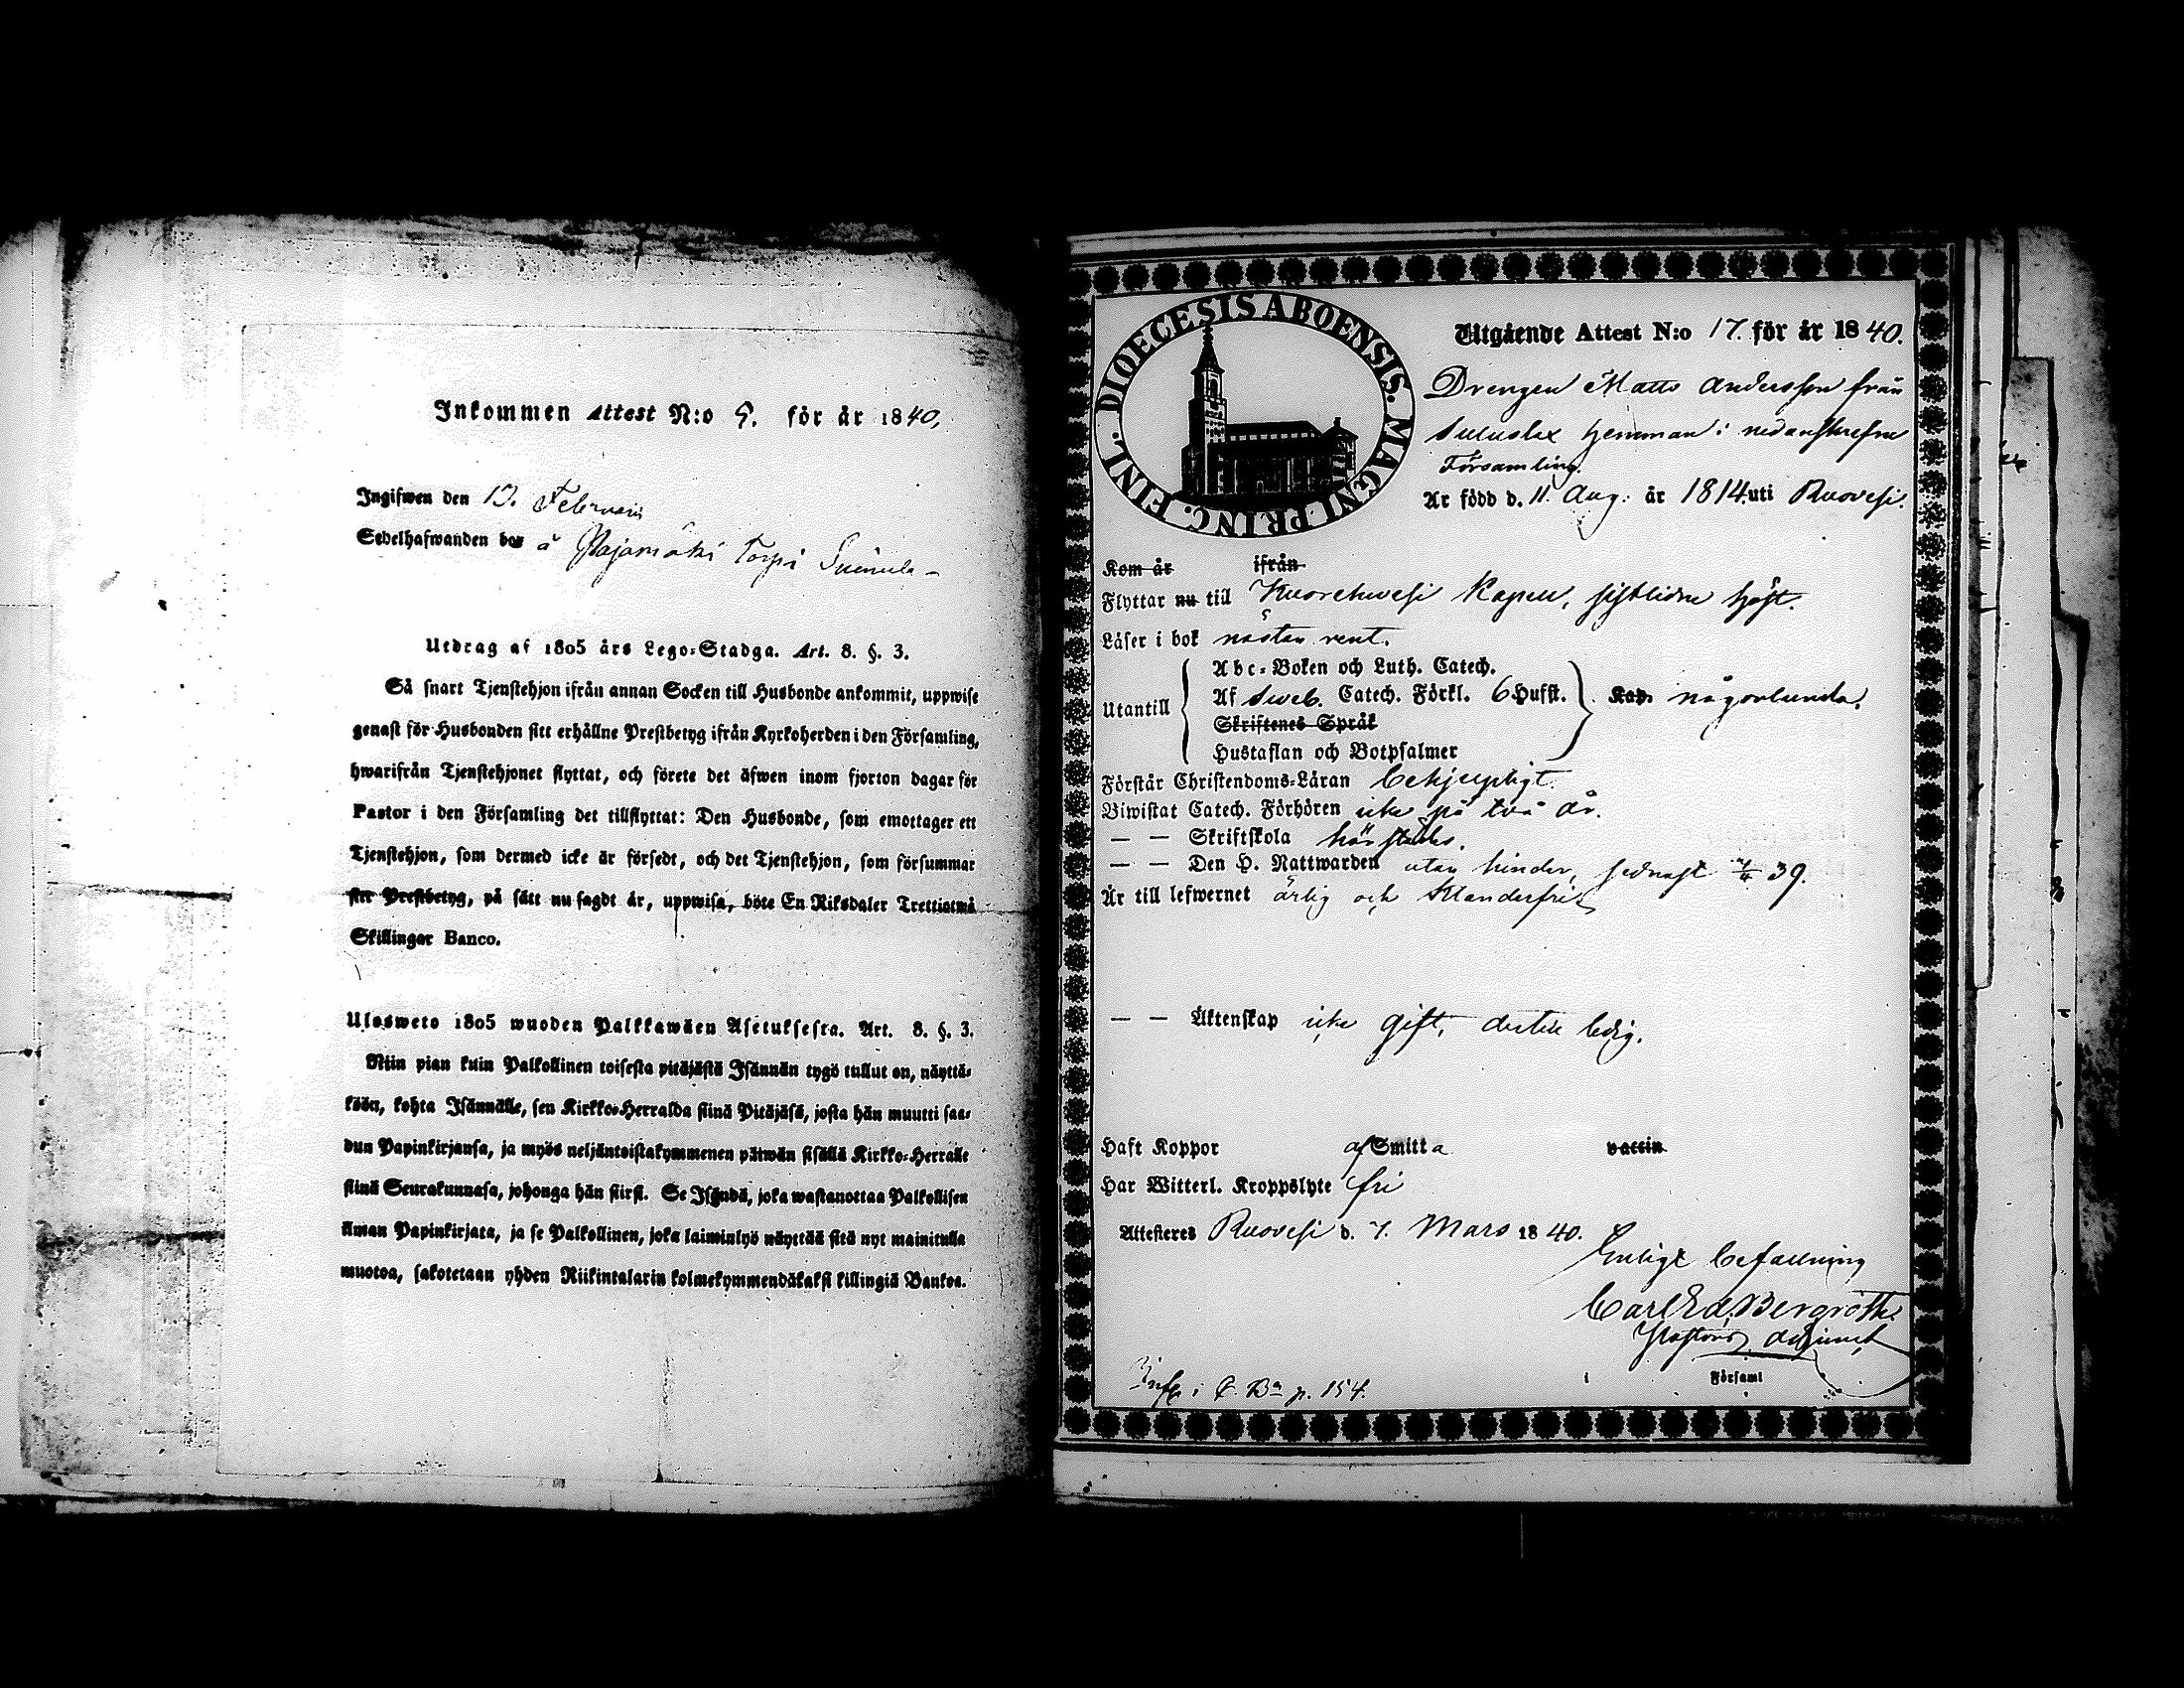 Inkommen Attest N:o 9. för år 1840,
Ingifwen den 13. Februari
Sedelhafwanden bor å Pajamäki Torp i Suinula
Utdrag af 1805 års Lego-Stadga. Art. 8. §. 3.
Så snart Tjenstehjon ifrån annan Socken till Husbonde ankommit, uppwise
genast för Husbonden sitt erhållne Prestbetyg ifrån Kyrkoherden i den Församling,
hwarifrån Tjenstehjonet flyttat, och förete det äfwen inom fjorton dagar för
Pastor i den Församling det tillflyttat: Den Husbonde, som emottager ett
Tjenstehjon, som dermed icke är försedt, och det Tjenstehjon, som försummar
sitt Prestbetyg, på sätt nu sagdt är, uppwisa, böte En Riksdaler Trettiotwå
Skillingar Banco.
Ulosweto 1805 wuoden Palkkawäen Asetuksesta. Art. 8. §. 3.
Niin pian kuin Palkollinen toisesta pitäjästä Isännän tygö tullut on, näyttä-
köön, kohta Isännälle, sen Kirkko-Herralda siinä Pitäjäsä, josta hän muutti saa-
dun Papinkirjansa, ja myös neljäntoistakymmenen päiwän sisällä Kirkko-Herralle
siinä Seurakunnasa, johonga hän siirsi. Se Isändä, joka wastanottaa Palkollisen
ilman Papinkirjata, ja se Palkollinen, joka laiminlyö näyttää sitä nyt mainitulla
muotoa, sakotetaan yhden Riikintalarin kolmekymmendäkaksi killingiä Bankoa.
DIOECESIS ABOENSIS. MAGNI PRINC. FINL.
Utgående Attest N:o 17. för år 1840.
Drengen Matts Andersson från
hemman i nedanskrefne
Församling.
Är född d. 11. Aug. år 1814. uti Ruovesi.
Kom år ifrån
Flyttar nu till Kuorehvesi Kapell, sistlidne höst.
Läser i bok nästan rent.
Utantill
Abc-Boken och Luth. Catech.
Af Sweb. Catech. Förkl. 6 Hufst.
Skriftenes Språk
Hustaflan och Botpsalmer
Kap. någorlunda.
Förstår Christendoms-Läran behjelpligt.
Biwistat Catech. Förhören icke på två år.
— — Skriftskola härstädes.
— — Den H. Nattwarden utan hinder, sednast 39.
Är till lefwernet ärlig och klanderfri
— — Äktenskap icke gift, dertill ledig.
Haft Koppor af Smitta vaccin
Har Witterl. Kroppslyte fri
Attesteres Ruovesi d. 7. Mars 1840.
Enligt befallning
Carl Ed. Bergroth
Pastors adjunct
i Församl
Inf. i C. Bn p. 154.